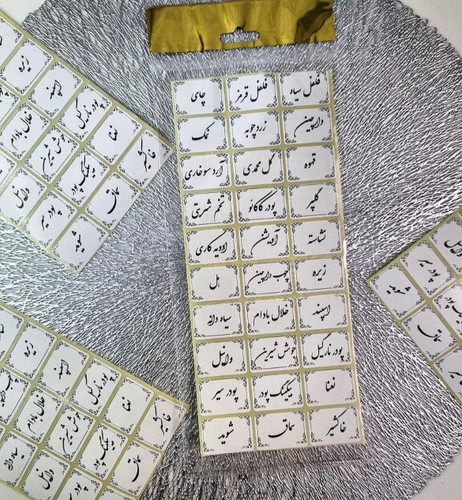 فلفل سیاه فلفل قرمز چای
دارچین زردچوبه نمک
قهوه گل محمدی آرد سوخاری
گلپر پودر کاکائو تخم شربتی
نشاسته آویشن ادویه کاری
زیره چوب دارچین هل
اسپند خلال بادام سیاه دانه
پودر نارگیل جوش شیرین وانیل
نعنا بیکینگ پودر پودر سیر
خاکشیر سماق شوید